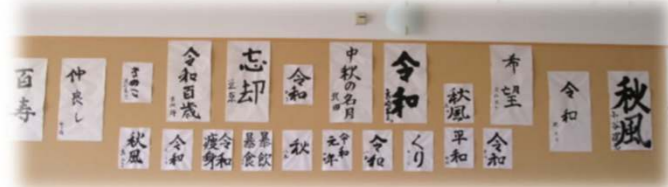 百寿
仲良し
きのこ
令和百歳
忘却
令和
中秋の名月
令和
秋風
希望
令和
秋風
秋風
令和
令和
痩身
暴飲
暴食
秋
令和
元年
令和
くり
平和
令和